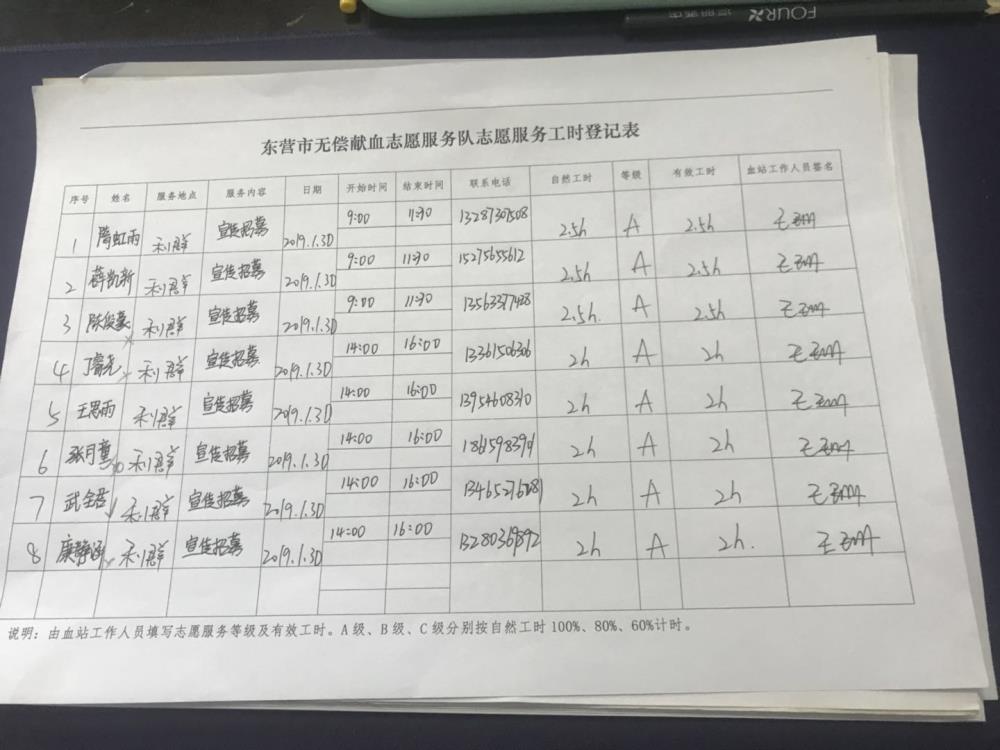 FOURX
东营市无偿献血志愿服务队志愿服务工时登记表
序号 姓名 服务地点 服务内容 日期 开始时间 结束时间 联系电话 自然工时 等级 有效工时 血站工作人员签名
1 隋虹雨 利群 宣传招募 2019.1.30 9:00 11:30 13287307508 2.5h A 2.5h
2 薛凯新 利群 宣传招募 2019.1.30 9:00 11:30 15275655612 2.5h A 2.5h
3 陈俊豪 利群 宣传招募 2019.1.30 9:00 11:30 2.5h. A 2.5h
4 利群 宣传招募 2019.1.30 14:00 16:00 13361506306 2h A 2h
5 王思雨 利群 宣传招募 2019.1.30 14:00 16:00 13954608310 2h A 2h
6 利群 宣传招募 2019.1.30 14:00 16:00 2h A 2h
7 利群 宣传招募 2019.1.30 14:00 16:00 2h A 2h
8 康静涵 利群 宣传招募 2019.1.30 14:00 16:00 2h A 2h.
说明：由血站工作人员填写志愿服务等级及有效工时。A级、B级、C级分别按自然工时100%、80%、60%计时。